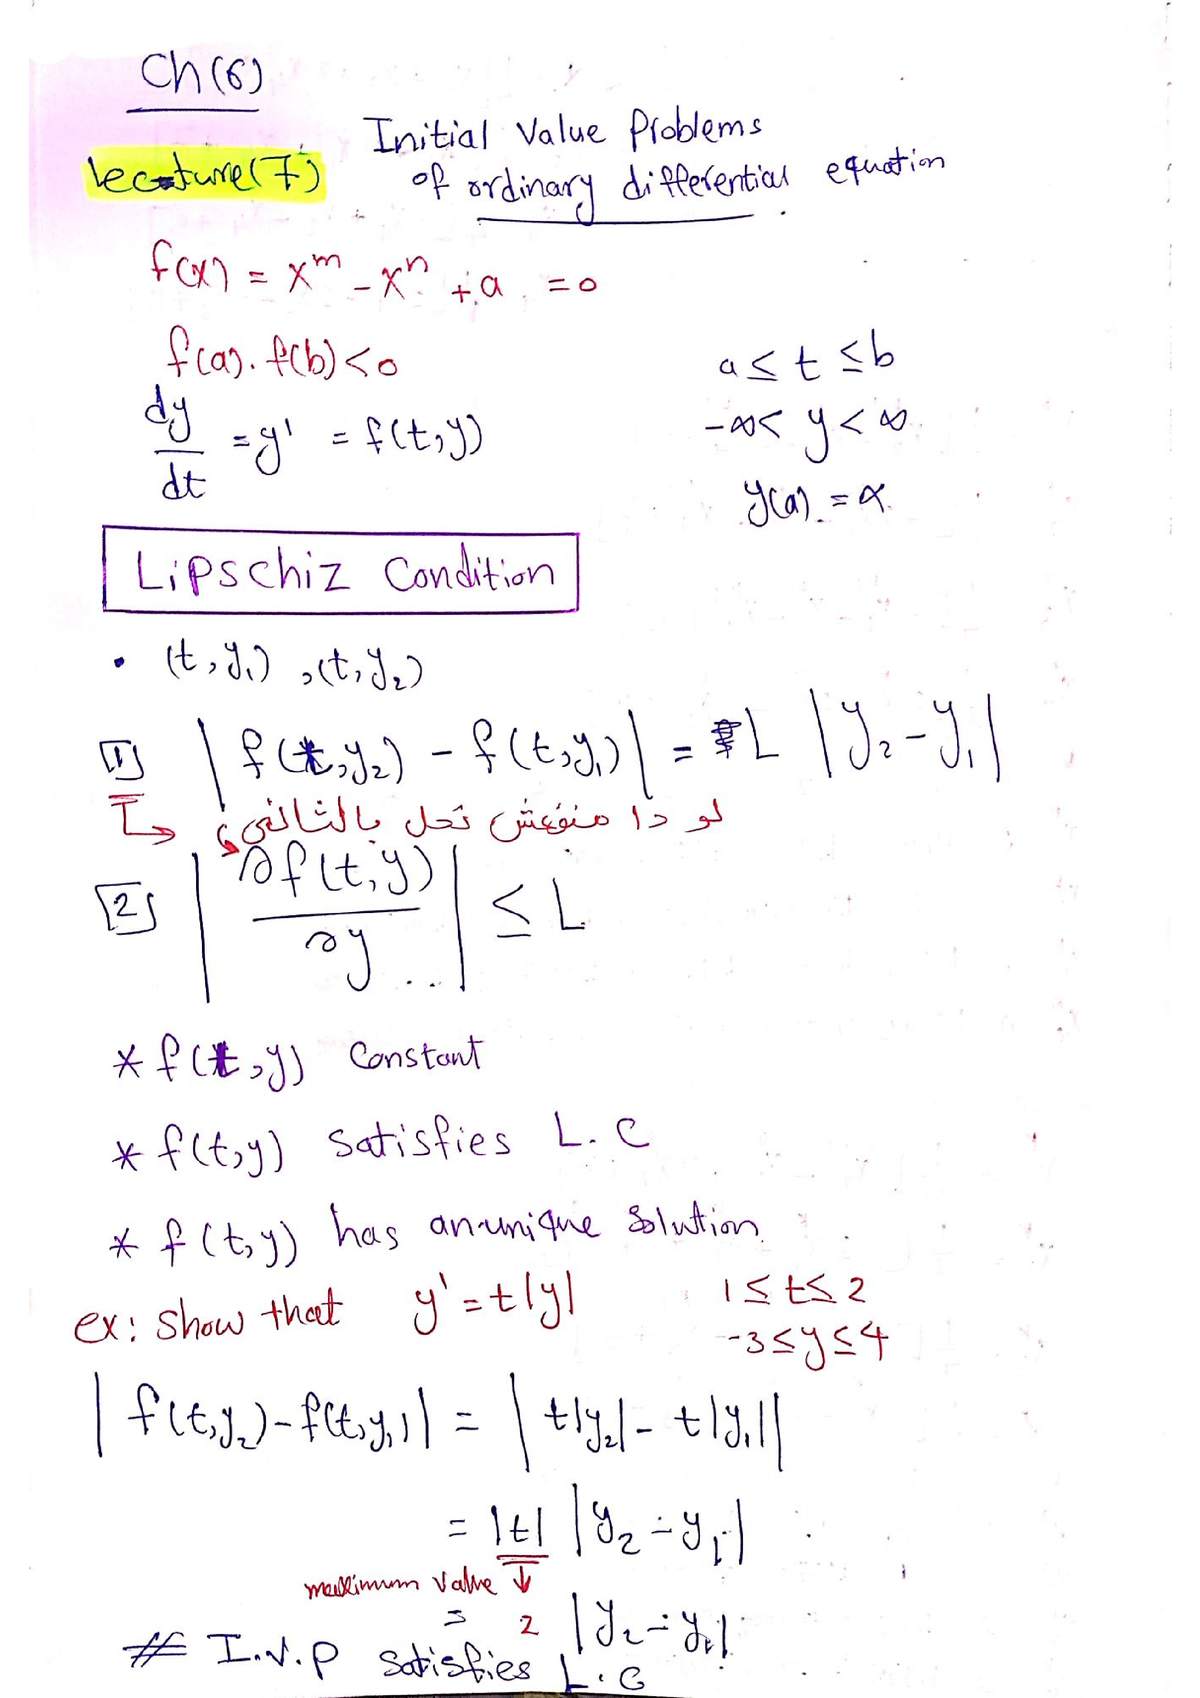 Ch(6)
Initial Value Problems
Lecture(7)
of ordinary differential equation
f(x) = x^m - x^n + a = 0
f(a). f(b) < 0
a ≤ t ≤ b
dy/dt = y' = f(t,y)
-∞ < y < ∞
y(a) = α
Lipschiz Condition
• (t, y₁) , (t, y₂)
[1] | f(t,y₂) - f(t,y₁) | = L | y₂ - y₁ |
لو دا منفعش تحل بالثاني
[2] | ∂f(t,y)/∂y | ≤ L
* f(t,y) Constant
* f(t,y) satisfies L.C
* f(t,y) has an unique solution.
ex: show that y' = t|y| 1 ≤ t ≤ 2
-3 ≤ y ≤ 4
| f(t,y₂) - f(t,y₁) | = | t|y₂| - t|y₁| |
= |t| | y₂ - y₁ |
maximum value ↓
= 2 | y₂ - y₁ |
# I.V.P satisfies L.C